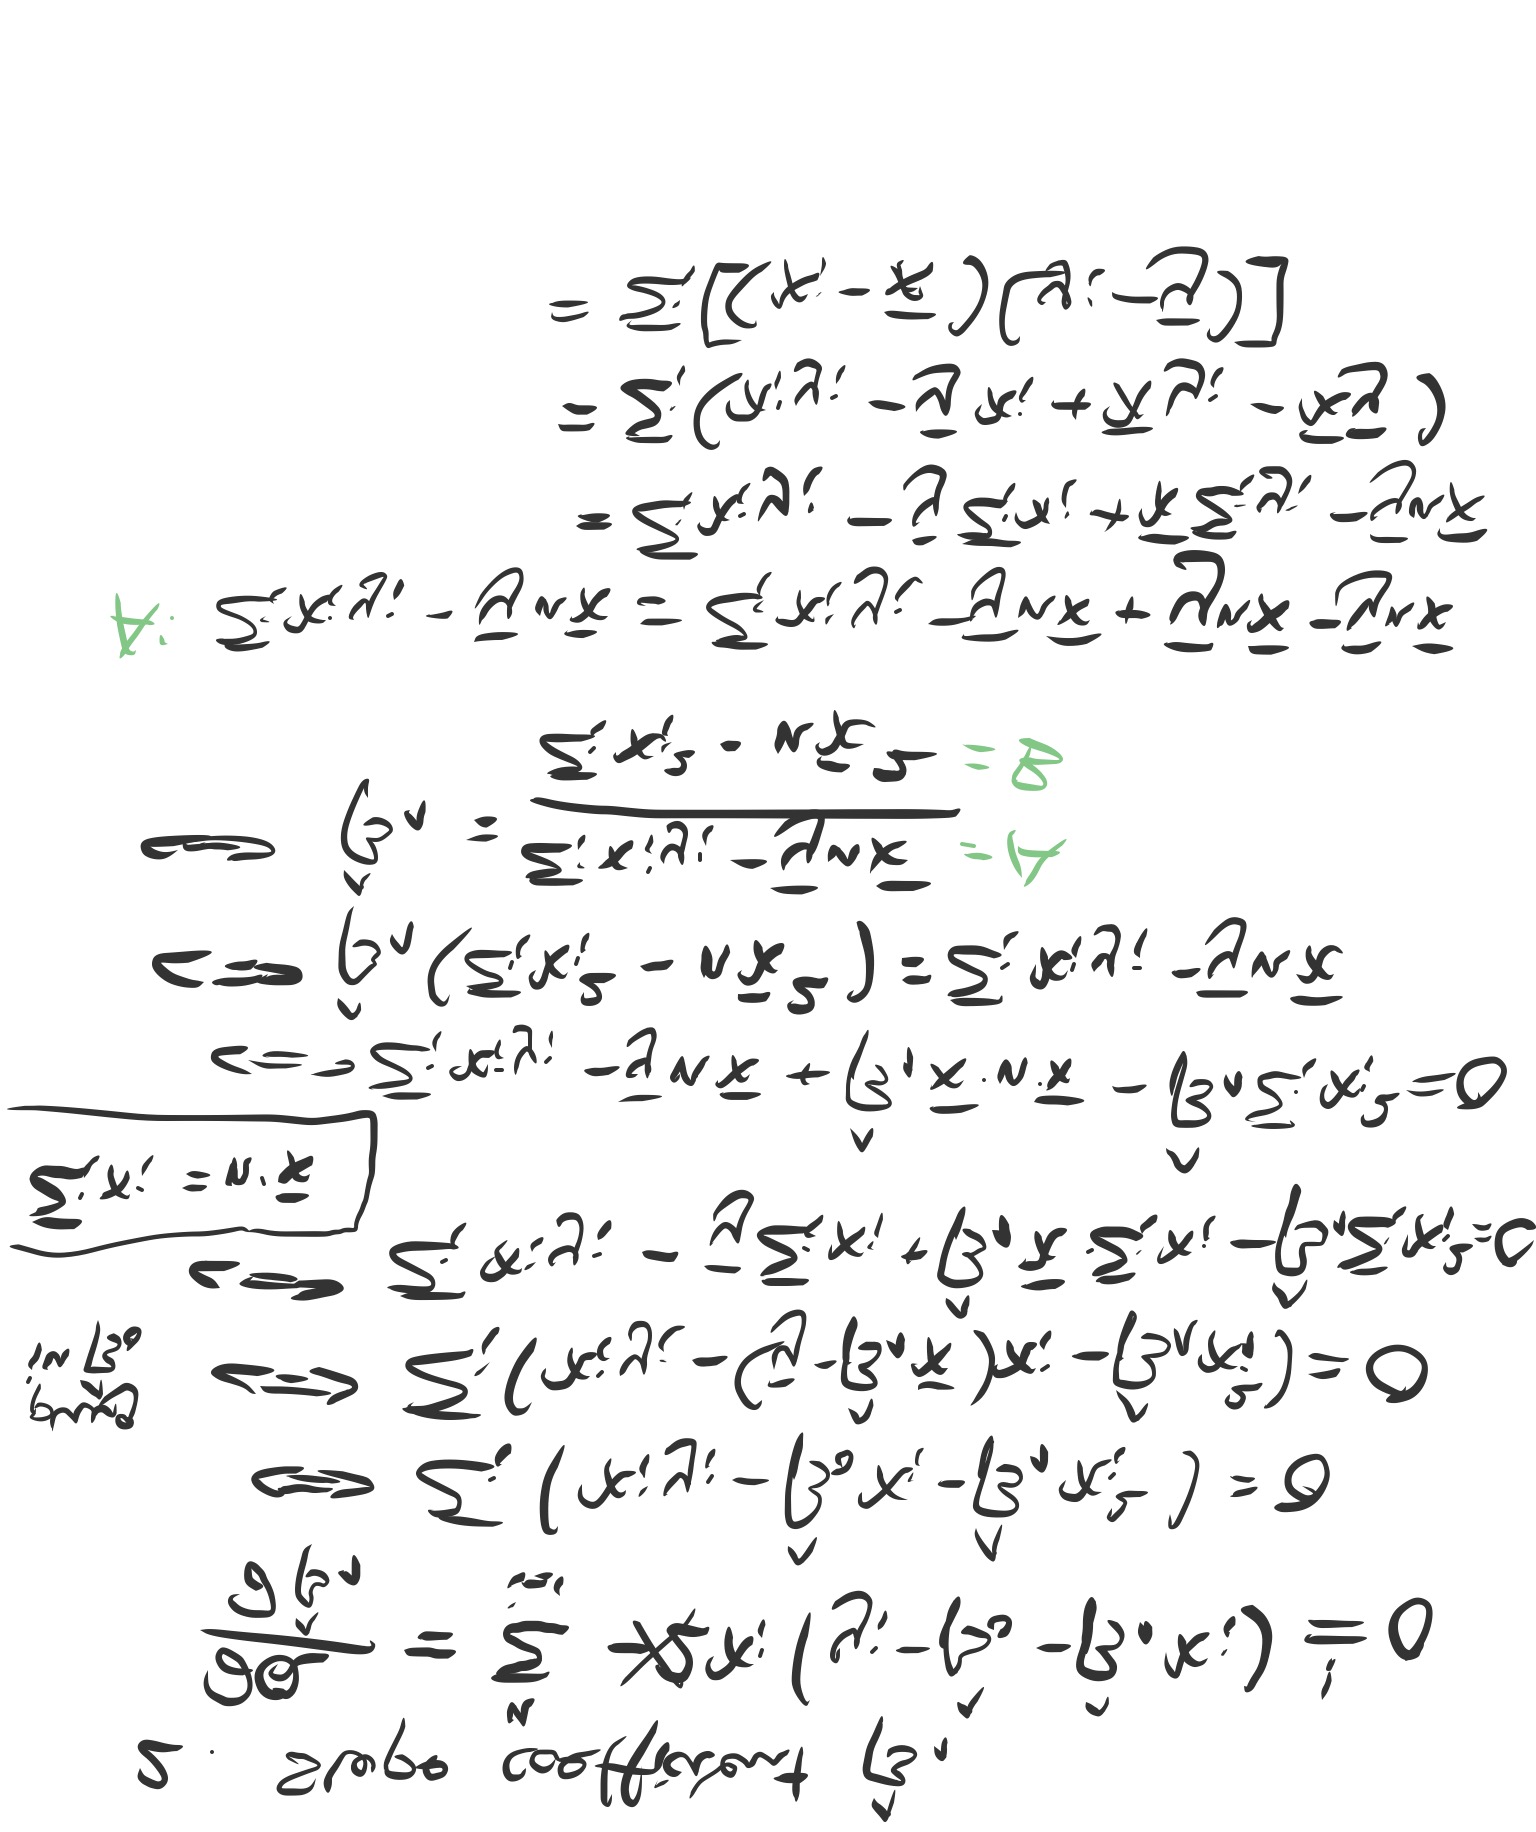 2. Slope coefficient β̂₁
∂Q/∂β̂₁ = Σⁿᵢ₌₁ -2xᵢ(yᵢ - β̂₀ - β̂₁xᵢ) != 0
⟺ Σᵢ(xᵢyᵢ - β̂₀xᵢ - β̂₁xᵢ²) = 0
plug in β̂₀ ⟺ Σᵢ(xᵢyᵢ - (ȳ - β̂₁x̄)xᵢ - β̂₁xᵢ²) = 0
⟺ Σᵢxᵢyᵢ - ȳΣᵢxᵢ + β̂₁x̄Σᵢxᵢ - β̂₁Σᵢxᵢ² = 0
Σᵢxᵢ = n·x̄
⟺ Σᵢxᵢyᵢ - ȳnx̄ + β̂₁x̄·nx̄ - β̂₁Σᵢxᵢ² = 0
⟺ β̂₁(Σᵢxᵢ² - nx̄²) = Σᵢxᵢyᵢ - ȳnx̄
⟺ β̂₁ = (Σᵢxᵢyᵢ - ȳnx̄)/(Σᵢxᵢ² - nx̄²)
= A
= B
A: Σᵢxᵢyᵢ - ȳnx̄ = Σᵢxᵢyᵢ - ȳnx̄ + ȳnx̄ - ȳnx̄
= Σᵢxᵢyᵢ - ȳΣᵢxᵢ + x̄Σᵢyᵢ - ȳnx̄
= Σᵢ(xᵢyᵢ - ȳxᵢ + x̄yᵢ - x̄ȳ)
= Σᵢ[(xᵢ - x̄)(yᵢ - ȳ)]